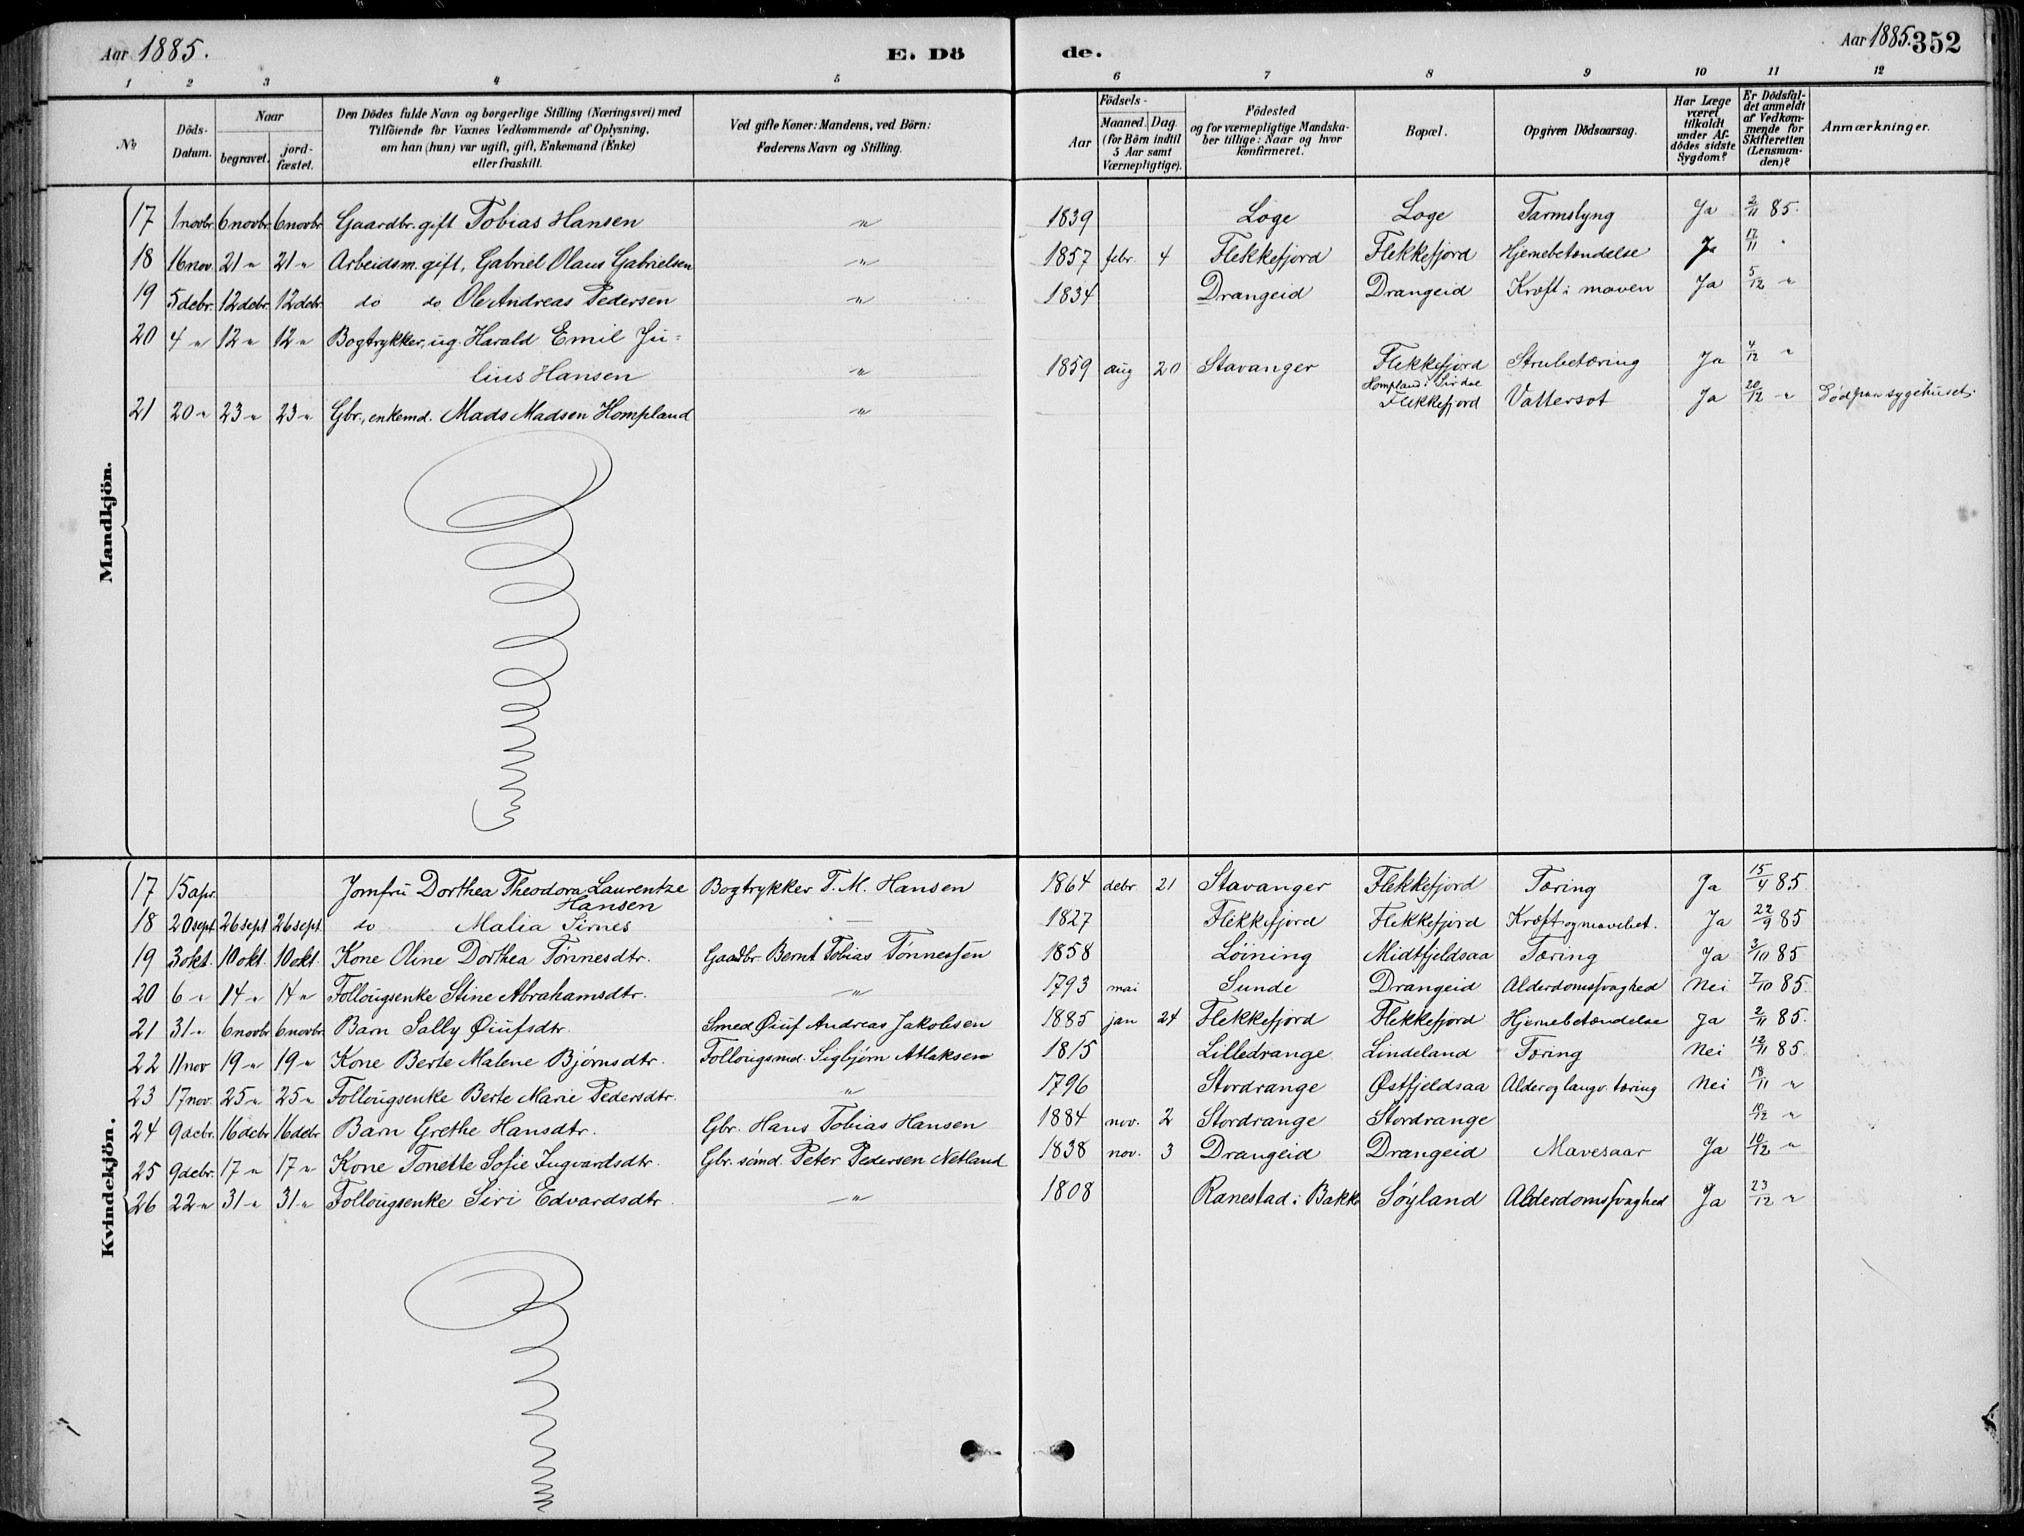 Aar 1885. E. Dö de. Aar 1885. 352
1 2 3 4 5 6 7 8 9 10 11 12
№
Döds-Datum.
Naar
begravet.
jord-fæstet.
Den Dödes fulde Navn og borgerlige Stilling (Næringsvei) med
Tilföiende for Voxnes Vedkommende af Oplysning,
om han (hun) var ugift, gift, Enkemand (Enke)
eller fraskilt.
Ved gifte Koner: Mandens, ved Börn:
Faderens Navn og Stilling.
Födsels-
Aar
Maaned. Dag.
(for Börn indtil
5 Aar samt
Værnepligtige).
Födested
og for værnepligtige Mandska-
ber tillige: Naar og hvor
konfirmeret.
Bopæl.
Opgiven Dödsaarsag.
Har Læge
været
tilkaldt
under Af-
dödes sidste
Sygdom?
Er Dödsfal-
det anmeldt
af Vedkom-
mende for
Skifteretten
(Lensman-
den)?
Anmærkninger.
Mandkjön.
17 1 novbr. 6 novbr. 6 novbr Gaardbr. gift Tobias Hansen " 1839 Loge Loge Tarmslyng Ja 2/11 85.
18 16 nov. 21 " 21 " Arbeidsm. gift, Gabriel Olaus Gabrielsen " 1857 febr. 4 Flekkefjord Flekkefjord Hjernebetændelse Ja 17/11 "
19 5 debr. 12 debr. 12 debr. do do Ole Andreas Pedersen " 1834 Drangeid Drangeid Kræft i maven Ja 5/12 "
20 4 " 12 " 12 " Bogtrykker, ug. Harald Emil Ju=
lius Hansen " 1859 aug 20 Stavanger Flekkefjord Strubetæring Ja 4/12 "
Hompland i Sirdal
21 20 " 23 " 23 " Gbr., enkemd. Mads Madsen Hompland " Flekkefjord Vattersot Ja 20/12 " Död paa sygehuset.
Kvindekjön.
17 15 apr. Jomfru Dorthea Theodora Laurentze Bogtrykker T. M. Hansen 1864 debr. 21 Stavanger Flekkefjord Tæring Ja 15/4 85.
Hansen
18 20 sept 26 sept 26 sept. do Malia Sirnes — 1827 Flekkefjord Flekkefjord Kræft og mavebet. Ja 22/9 85
19 3 okt. 10 okt. 10 okt. Kone Oline Dorthea Tønnesdtr. Gaardbr. Bernt Tobias Tønnessen 1858 Löining Midtfjeldsaa Tæring Ja 3/10 85
20 6 " 14 " 14 " Follougsenke Stine Abrahamsdtr. " 1793 mai Sunde Drangeid Alderdomssvaghed Nei 7/10 85.
21 31 " 6 novbr 6 novbr. Barn Sally Øiufsdtr. Smed Øiuf Andreas Jakobsen 1885 jan 24 Flekkefjord Flekkefjord Hjernebetændelse Ja 2/11 85.
22 11 nov 19 " 19 " Kone Berte Malene Bjørnsdtr. Follougsmd. Sigbjørn Atlaksen 1815 Lilledrange Lindeland Tæring Nei 12/11 85.
23 17 nov. 25 " 25 " Follougsenke Berte Marie Pedersdtr. " 1796 Stordrange Østfjeldsaa Alder og langv. tæring Nei 18/11 "
24 9 debr. 16 debr 16 debr. Barn Grethe Hansdtr. Gbr. Hans Tobias Hansen 1884 nov. 2 Stordrange Stordrange 10/12 "
25 9 debr. 17 " 17 " Kone Tonette Sofie Ingvardsdtr. Gbr. sömd. Peter Pedersen Netland 1838 nov. 3 Drangeid Drangeid Mavesaar Ja 10/12 "
26 22 " 31 " 31 " Follougsenke Siri Edvardsdtr. " 1808 Ranestad i Bakke Söyland Alderdomssvaghed Ja 23/12 "